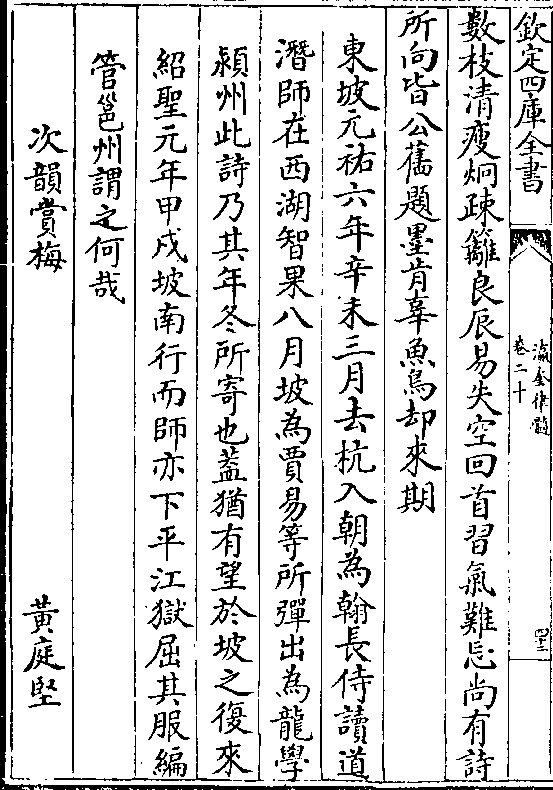 欽定四庫全書
瀛奎律髓
卷二十
四十二
數枝清瘦炯疎籬良辰易失空回首習氣難忘尚有詩
所向皆公舊題墨肯辜魚鳥却來期
東坡元祐六年辛未三月去杭入朝為翰長侍讀道
潛師在西湖智果八月坡為賈易等所彈出為龍學
潁州此詩乃其年冬所寄也葢猶有望於坡之復來
紹聖元年甲戌坡南行而師亦下平江獄屈其服編
管邕州謂之何哉
次韻賞梅
黃庭堅